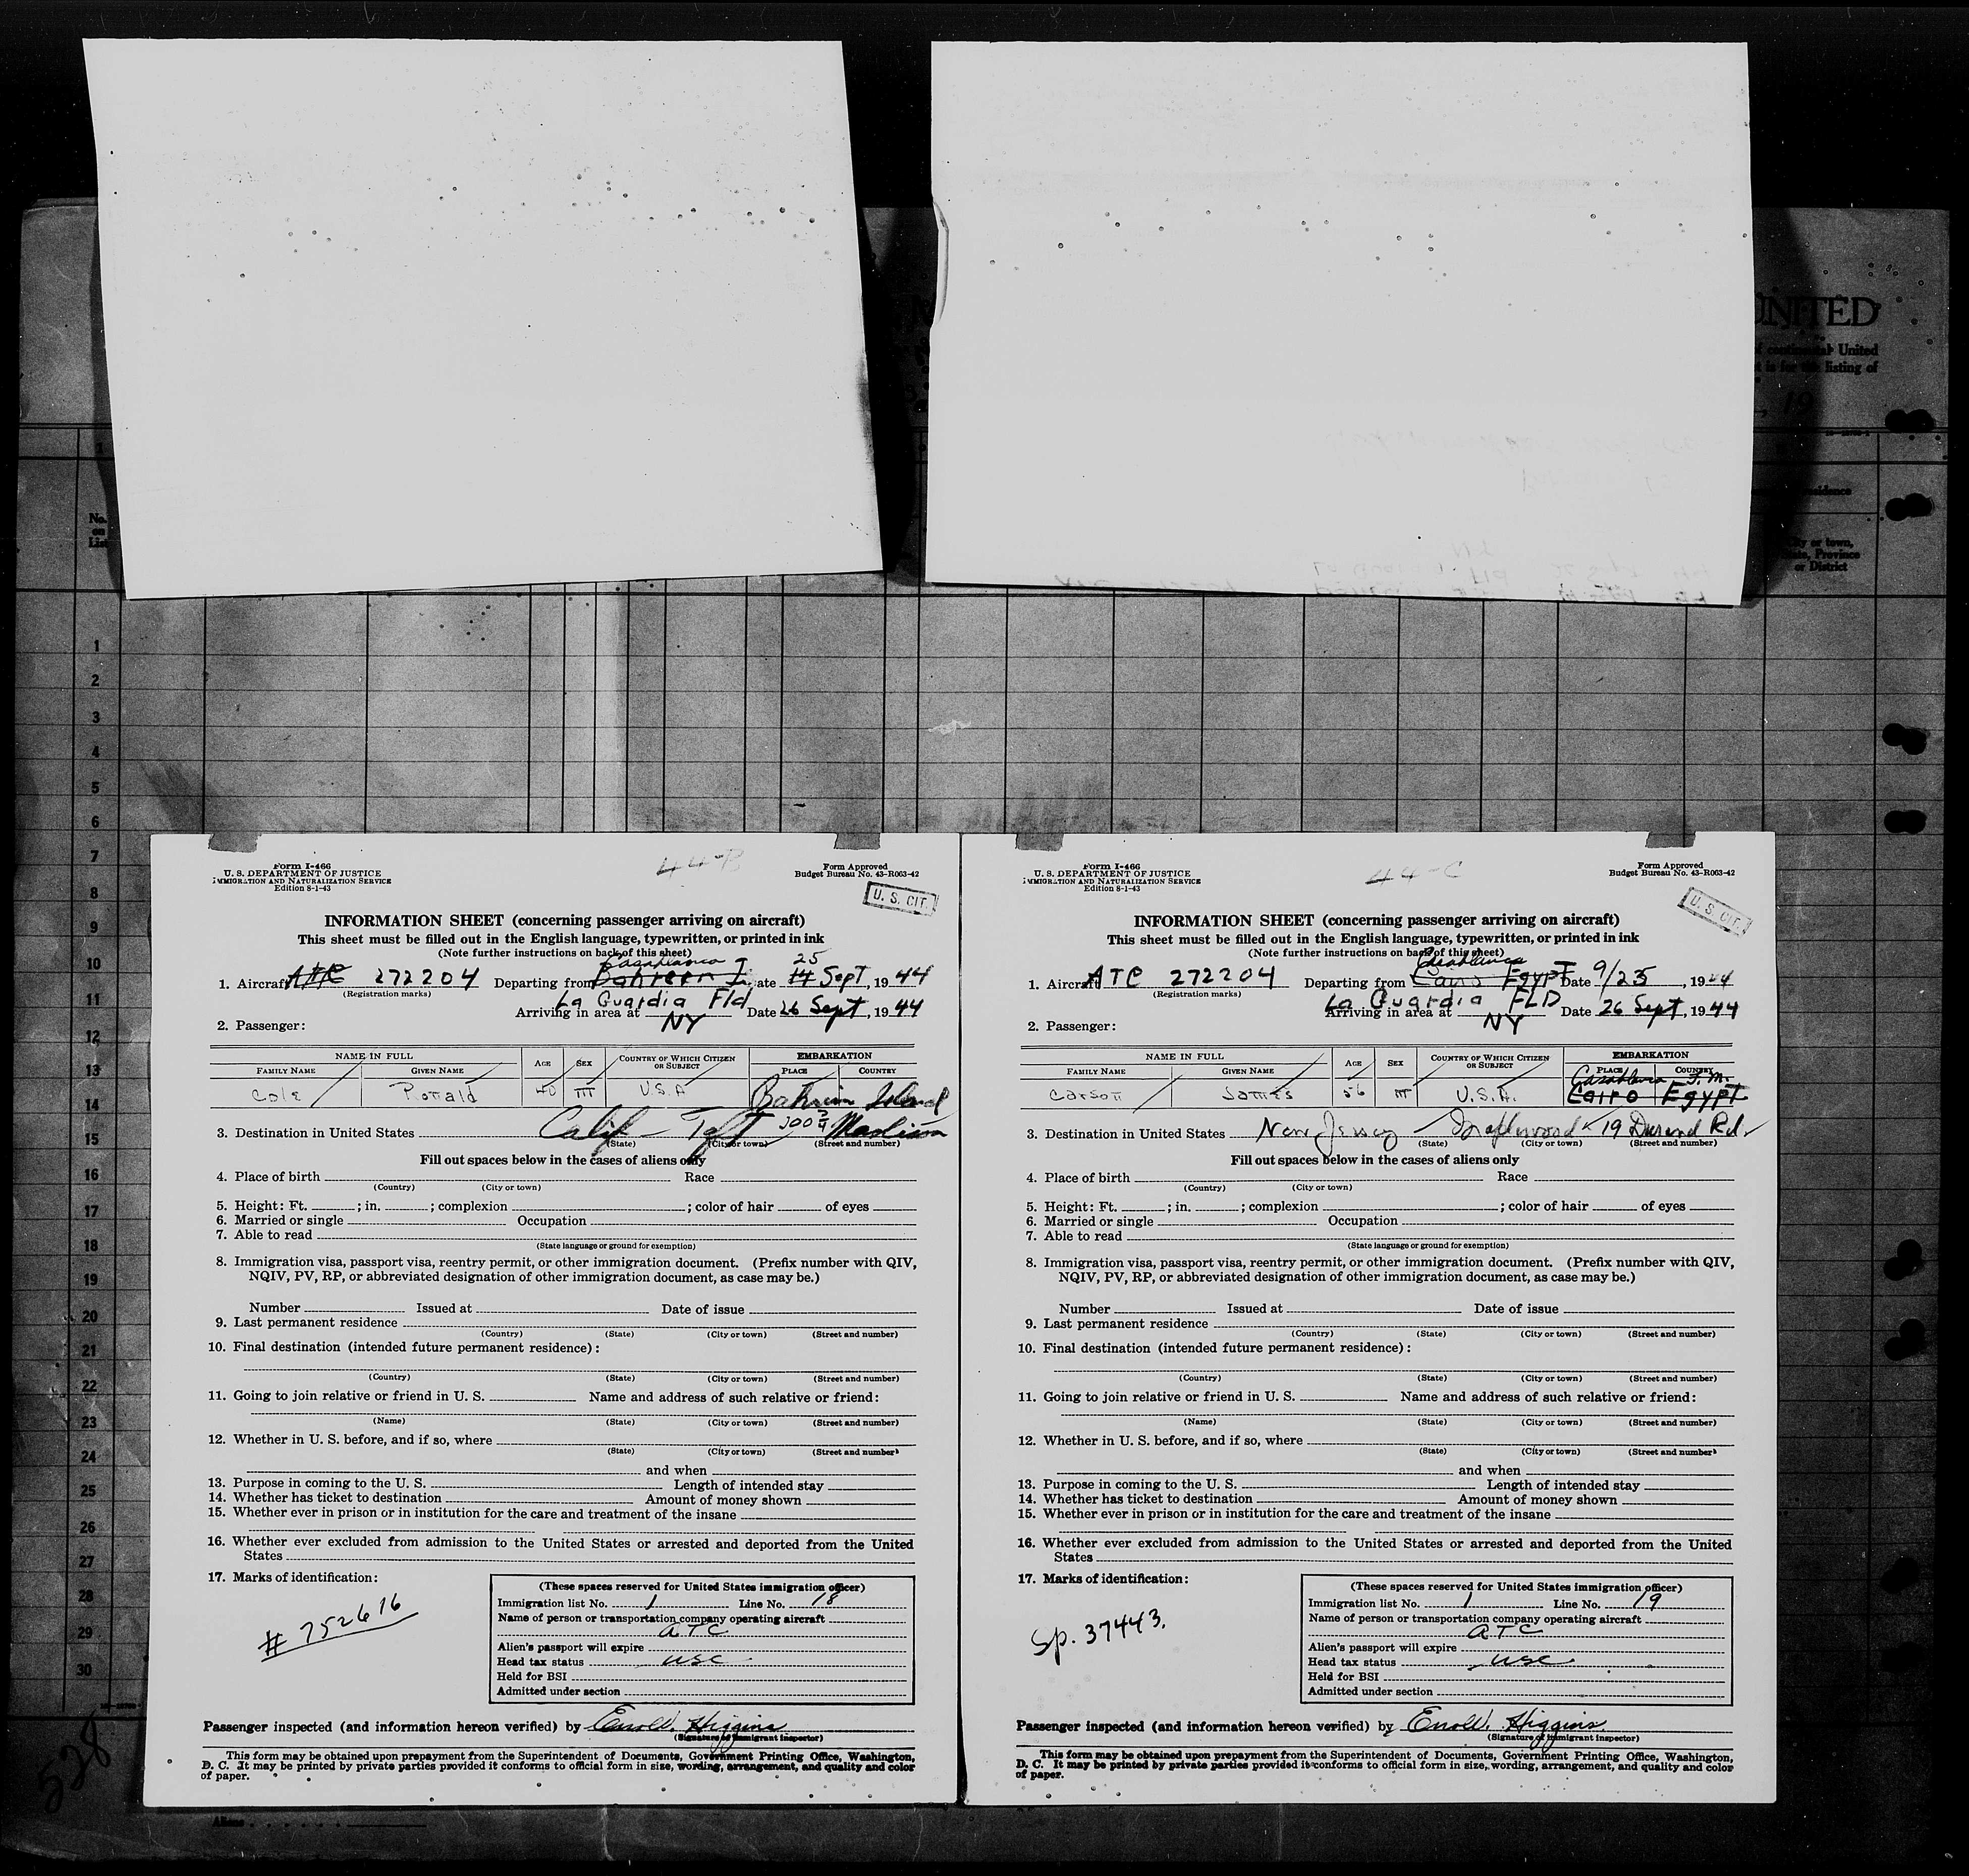 UNITED
continental United
listing of
, 19
No.
on
List
residence
City or town,
State, Province
or District
1
2
3
4
5
6
7
8
9
10
11
12
13
14
15
16
17
18
19
20
21
22
23
24
25
26
27
28
29
30
528
Aliens
44-B
Form I-466
U. S. DEPARTMENT OF JUSTICE
IMMIGRATION AND NATURALIZATION SERVICE
Edition 8-1-43
Form Approved
Budget Bureau No. 43-R063-42
U. S. CIT.
INFORMATION SHEET (concerning passenger arriving on aircraft)
This sheet must be filled out in the English language, typewritten, or printed in ink
(Note further instructions on back of this sheet)
Casablanca 25
1. Aircraft ATC 272204 Departing from Bahrein I. Date 14 Sept, 1944
(Registration marks)
Arriving in area at La Guardia Fld NY Date 26 Sept, 1944
2. Passenger:
NAME IN FULL AGE SEX COUNTRY OF WHICH CITIZEN OR SUBJECT EMBARKATION
FAMILY NAME GIVEN NAME PLACE COUNTRY
Cole Ronald 40 M U.S.A Bahrein Island
3. Destination in United States Calif - Taft 100 Madison
(State) (City or town) (Street and number)
Fill out spaces below in the cases of aliens only
4. Place of birth Race
(Country) (City or town)
5. Height: Ft. ; in. ; complexion ; color of hair of eyes
6. Married or single Occupation
7. Able to read
(State language or ground for exemption)
8. Immigration visa, passport visa, reentry permit, or other immigration document. (Prefix number with QIV,
NQIV, PV, RP, or abbreviated designation of other immigration document, as case may be.)
Number Issued at Date of issue
9. Last permanent residence
(Country) (State) (City or town) (Street and number)
10. Final destination (intended future permanent residence):
(Country) (State) (City or town) (Street and number)
11. Going to join relative or friend in U. S. Name and address of such relative or friend:
(Name) (State) (City or town) (Street and number)
12. Whether in U. S. before, and if so, where
(State) (City or town) (Street and number)
and when
13. Purpose in coming to the U. S. Length of intended stay
14. Whether has ticket to destination Amount of money shown
15. Whether ever in prison or in institution for the care and treatment of the insane
16. Whether ever excluded from admission to the United States or arrested and deported from the United
States
17. Marks of identification:
# 752616
(These spaces reserved for United States immigration officer)
Immigration list No. 1 Line No. 18
Name of person or transportation company operating aircraft
ATC
Alien's passport will expire
Head tax status USC
Held for BSI
Admitted under section
Passenger inspected (and information hereon verified) by Errol W. Higgins
(Signature of immigrant inspector)
This form may be obtained upon prepayment from the Superintendent of Documents, Government Printing Office, Washington,
D. C. It may be printed by private parties provided it conforms to official form in size, wording, arrangement, and quality and color
of paper.
44-C
Form I-466
U. S. DEPARTMENT OF JUSTICE
IMMIGRATION AND NATURALIZATION SERVICE
Edition 8-1-43
Form Approved
Budget Bureau No. 43-R063-42
U. S. CIT.
INFORMATION SHEET (concerning passenger arriving on aircraft)
This sheet must be filled out in the English language, typewritten, or printed in ink
(Note further instructions on back of this sheet)
Casablanca
1. Aircraft ATC 272204 Departing from Cairo EGYPT Date 9/25, 1944
(Registration marks)
Arriving in area at La Guardia FLD NY Date 26 Sept, 1944
2. Passenger:
NAME IN FULL AGE SEX COUNTRY OF WHICH CITIZEN OR SUBJECT EMBARKATION
FAMILY NAME GIVEN NAME PLACE COUNTRY
Casablanca F.M.
Carson James 56 M U.S.A. Cairo EGYPT
3. Destination in United States New Jersey - Maplewood - 19 Durand Rd.
(State) (City or town) (Street and number)
Fill out spaces below in the cases of aliens only
4. Place of birth Race
(Country) (City or town)
5. Height: Ft. ; in. ; complexion ; color of hair of eyes
6. Married or single Occupation
7. Able to read
(State language or ground for exemption)
8. Immigration visa, passport visa, reentry permit, or other immigration document. (Prefix number with QIV,
NQIV, PV, RP, or abbreviated designation of other immigration document, as case may be.)
Number Issued at Date of issue
9. Last permanent residence
(Country) (State) (City or town) (Street and number)
10. Final destination (intended future permanent residence):
(Country) (State) (City or town) (Street and number)
11. Going to join relative or friend in U. S. Name and address of such relative or friend:
(Name) (State) (City or town) (Street and number)
12. Whether in U. S. before, and if so, where
(State) (City or town) (Street and number)
and when
13. Purpose in coming to the U. S. Length of intended stay
14. Whether has ticket to destination Amount of money shown
15. Whether ever in prison or in institution for the care and treatment of the insane
16. Whether ever excluded from admission to the United States or arrested and deported from the United
States
17. Marks of identification:
Sp. 37443.
(These spaces reserved for United States immigration officer)
Immigration list No. 1 Line No. 19
Name of person or transportation company operating aircraft
ATC
Alien's passport will expire
Head tax status USC
Held for BSI
Admitted under section
Passenger inspected (and information hereon verified) by Errol W. Higgins
(Signature of immigrant inspector)
This form may be obtained upon prepayment from the Superintendent of Documents, Government Printing Office, Washington,
D. C. It may be printed by private parties provided it conforms to official form in size, wording, arrangement, and quality and color
of paper.